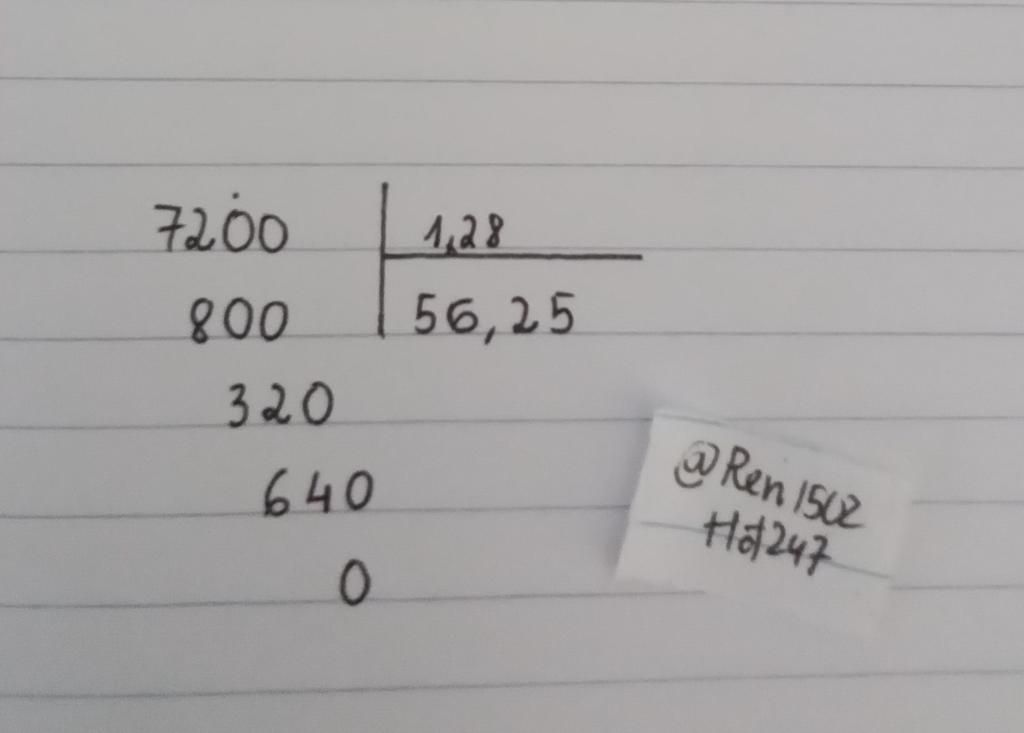 7200 1,28
800 56,25
320
640
0
@Ren1502
Hot247